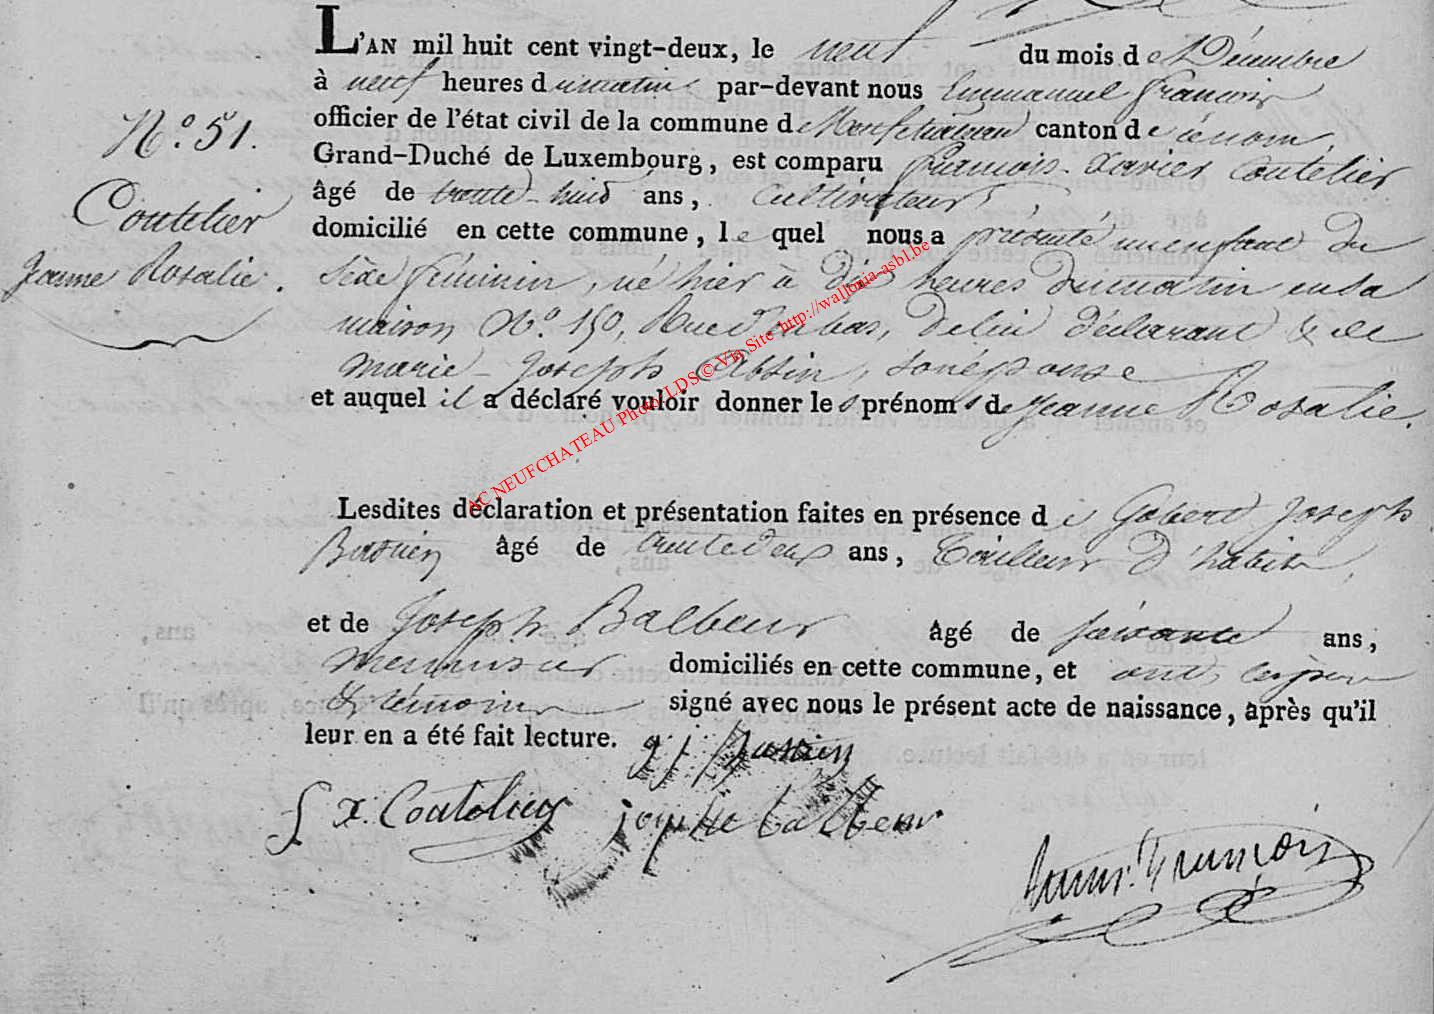 L'AN mil huit cent vingt-deux, le neuf du mois de Décembre
à neuf heures du matin par-devant nous Emmanuel François
officier de l'état civil de la commune de Neufchateau canton de
Grand-Duché de Luxembourg, est comparu françois-Xavier Coutelier
âgé de trente-huit ans, Cultivateur,
domicilié en cette commune, lequel nous a présenté un enfant du
Sexe féminin, né hier à dix heures du matin en sa
maison N.º 150, Rue du bas, de lui déclarant & de
marie-Joseph son épouse
et auquel il a déclaré vouloir donner les prénoms de Jeanne Rosalie.
N.º 51.
Coutelier
Jeanne Rosalie.
Lesdites déclaration et présentation faites en présence de Gobert Joseph
âgé de trente deux ans, Tailleur d'habits,
et de Joseph Balbeur âgé de soixante ans,
menuisier domiciliés en cette commune, et ont les père
& témoins signé avec nous le présent acte de naissance, après qu'il
leur en a été fait lecture.
f x. Coutelier josephe balbeur
Emm. François
AC NEUFCHATEAU Photo LDS © Via Site http://wallonia-asbl.be